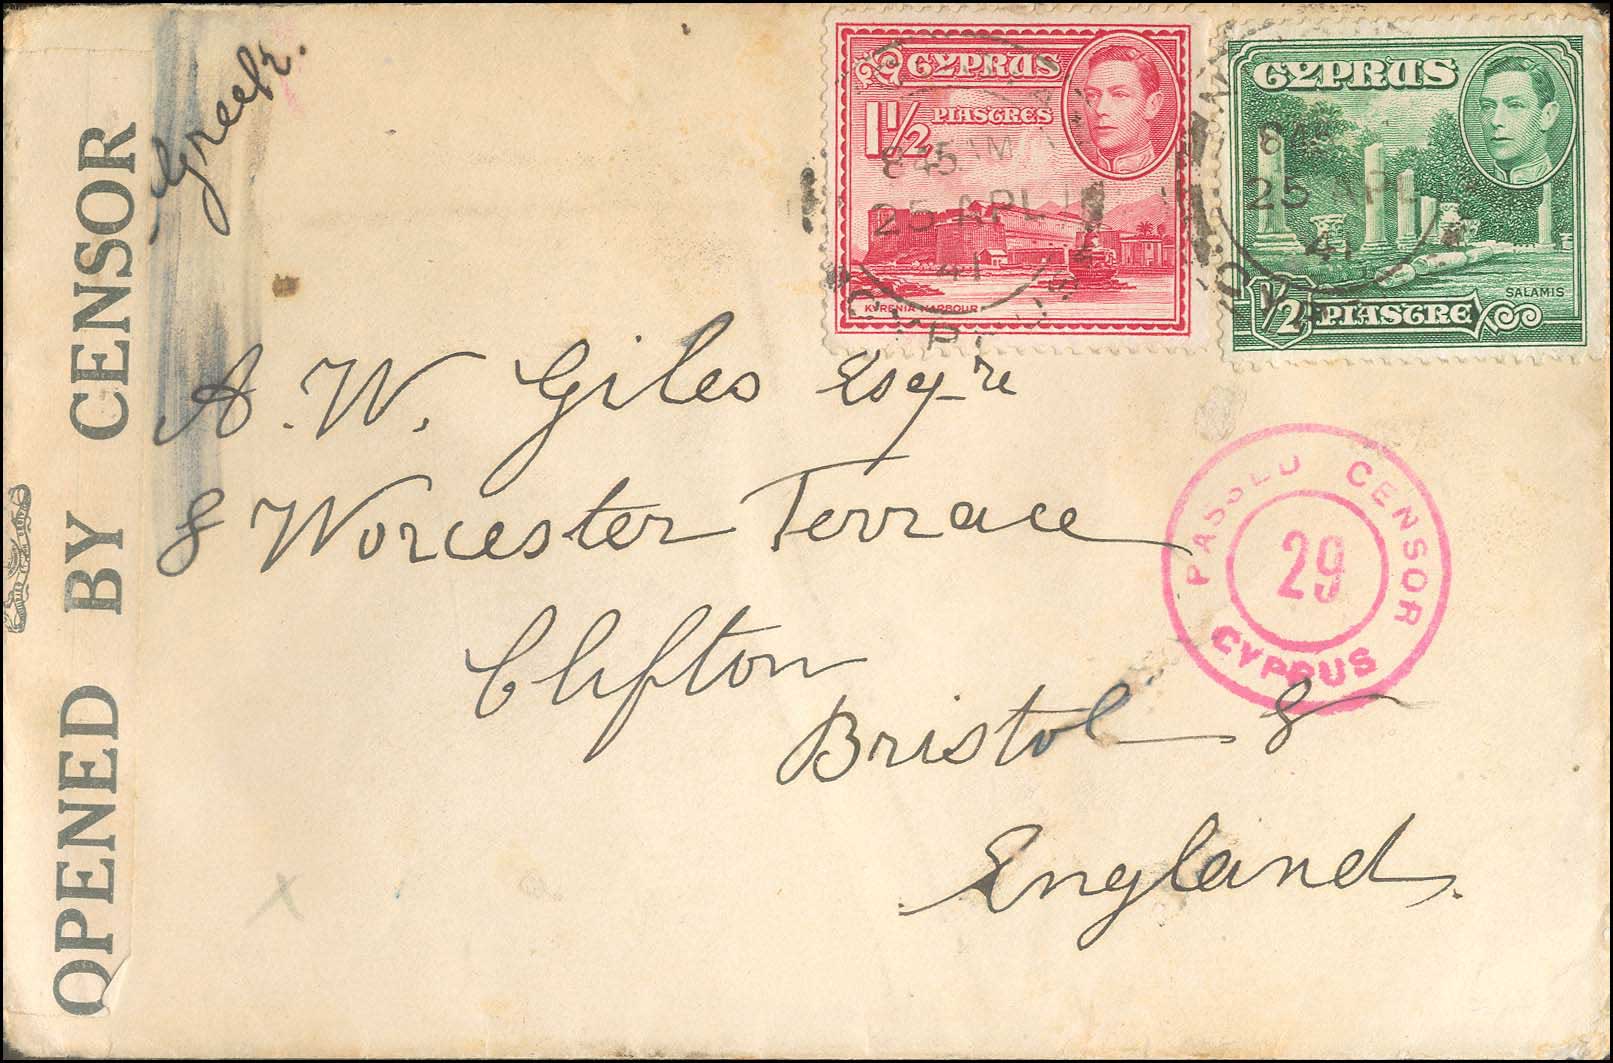 OPENED BY CENSOR
Greek.
CYPRUS
1 1/2 PIASTRES
KYRENIA HARBOUR
8 45 AM
25 APL
41
CYPRUS
CYPRUS
1/2 PIASTRE
SALAMIS
845
25 APL
41
A. W. Giles Esqre
8 Worcester Terrace
Clifton
Bristol 8
England.
PASSED CENSOR
29
CYPRUS
X